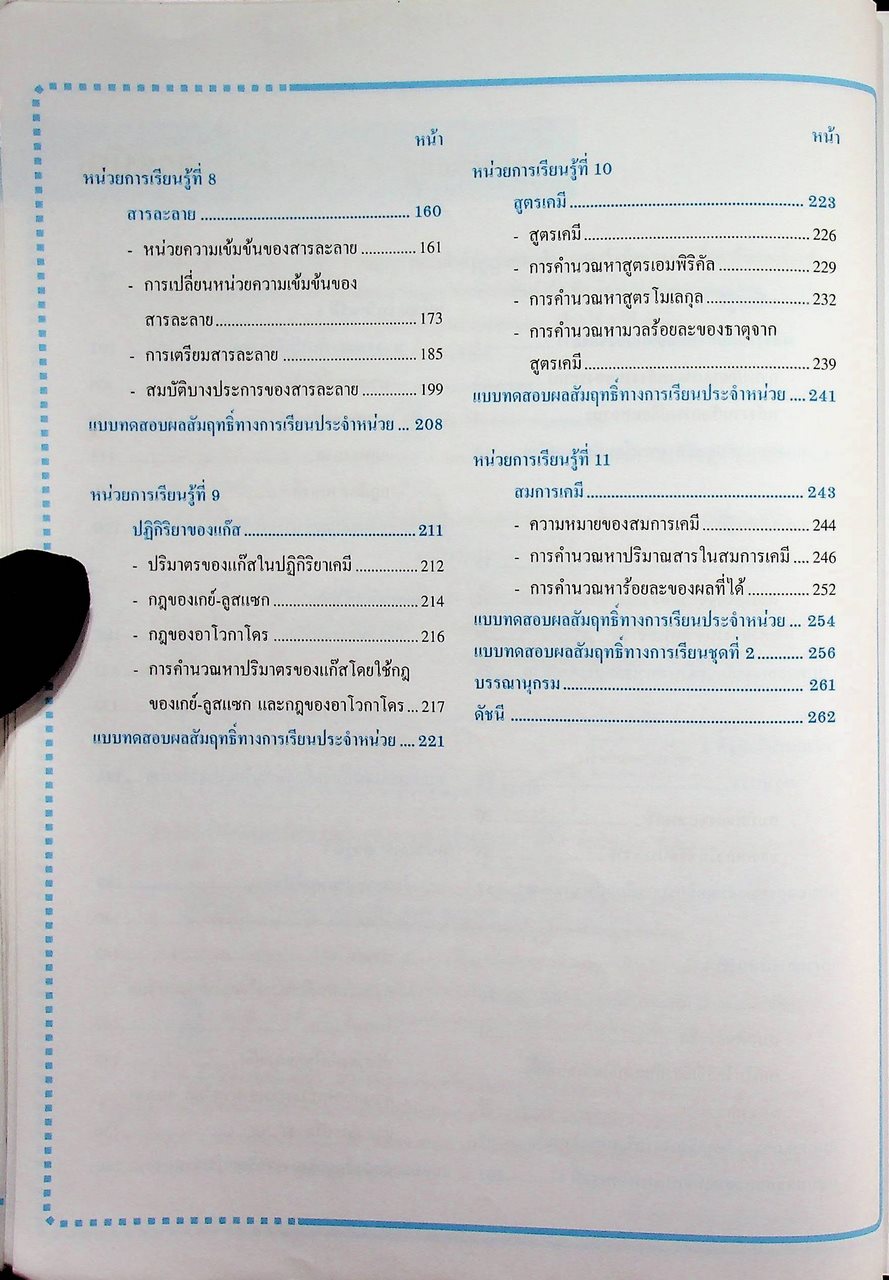 หน้า
หน่วยการเรียนรู้ที่ 8
สารละลาย .................................................... 160
- หน่วยความเข้มข้นของสารละลาย .............. 161
- การเปลี่ยนหน่วยความเข้มข้นของ
สารละลาย................................................... 173
- การเตรียมสารละลาย .................................. 185
- สมบัติบางประการของสารละลาย .............. 199
แบบทดสอบผลสัมฤทธิ์ทางการเรียนประจำหน่วย ... 208
หน่วยการเรียนรู้ที่ 9
ปฏิกิริยาของแก๊ส ........................................... 211
- ปริมาตรของแก๊สในปฏิกิริยาเคมี ................ 212
- กฎของเกย์-ลูสแซก .................................... 214
- กฎของอาโวกาโดร .................................... 216
- การคำนวณหาปริมาตรของแก๊สโดยใช้กฎ
ของเกย์-ลูสแซก และกฎของอาโวกาโดร ... 217
แบบทดสอบผลสัมฤทธิ์ทางการเรียนประจำหน่วย .... 221
หน้า
หน่วยการเรียนรู้ที่ 10
สูตรเคมี .......................................................... 223
- สูตรเคมี ......................................................... 226
- การคำนวณหาสูตรเอมพิริคัล ....................... 229
- การคำนวณหาสูตรโมเลกุล .......................... 232
- การคำนวณหามวลร้อยละของธาตุจาก
สูตรเคมี ......................................................... 239
แบบทดสอบผลสัมฤทธิ์ทางการเรียนประจำหน่วย .... 241
หน่วยการเรียนรู้ที่ 11
สมการเคมี ...................................................... 243
- ความหมายของสมการเคมี ........................... 244
- การคำนวณหาปริมาณสารในสมการเคมี .... 246
- การคำนวณหาร้อยละของผลที่ได้ ................ 252
แบบทดสอบผลสัมฤทธิ์ทางการเรียนประจำหน่วย ... 254
แบบทดสอบผลสัมฤทธิ์ทางการเรียนชุดที่ 2 ........... 256
บรรณานุกรม ............................................................ 261
ดัชนี ......................................................................... 262